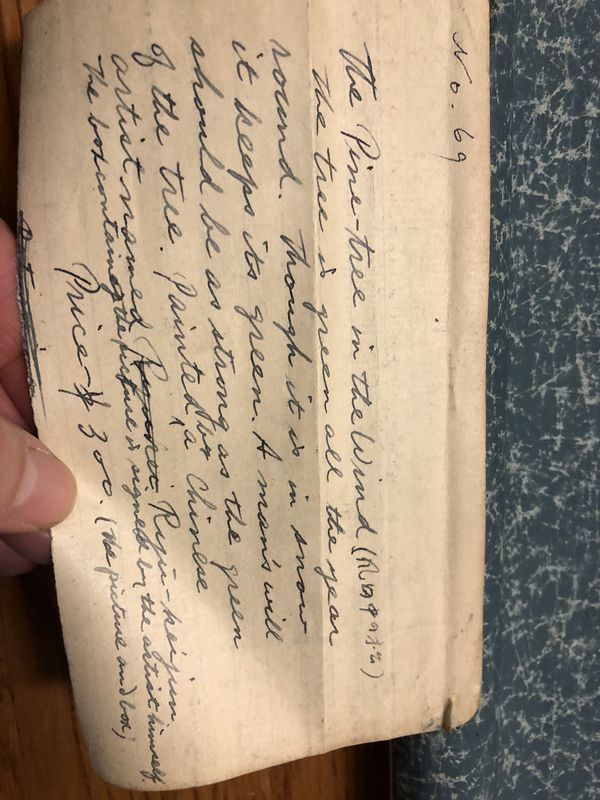 No. 69
The Pine-tree in the Wind
The tree is green all the year
round. Though it is in snow
it keeps its green. A man's will
should be as strong as the green
of the tree. Painted by a Chinese
artist named Riju-keijun.
The box containing the picture is signed by the artist himself.
Price-$300. (the picture and box)